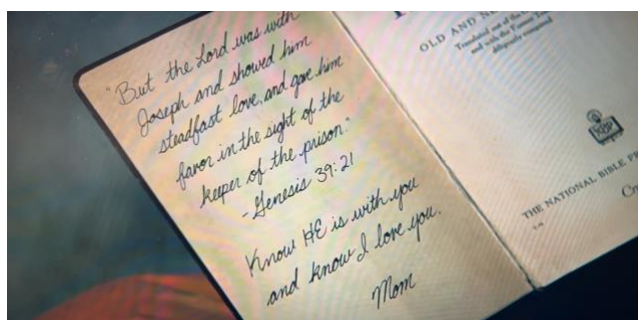 "But the Lord was with
Joseph and showed him
steadfast love, and gave him
favor in the sight of the
keeper of the prison."
- Genesis 39:21
Know HE is with you
and know I love you.
Mom
OLD AND
Translated out of the
and with the Former
diligently compared
THE NATIONAL BIBLE